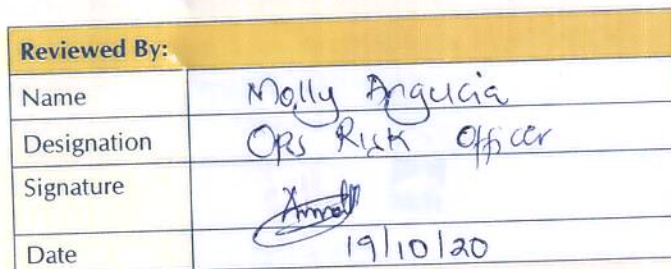 Reviewed By:
Name Molly Angucia
Designation Ops Risk Officer
Signature
Date 19/10/20